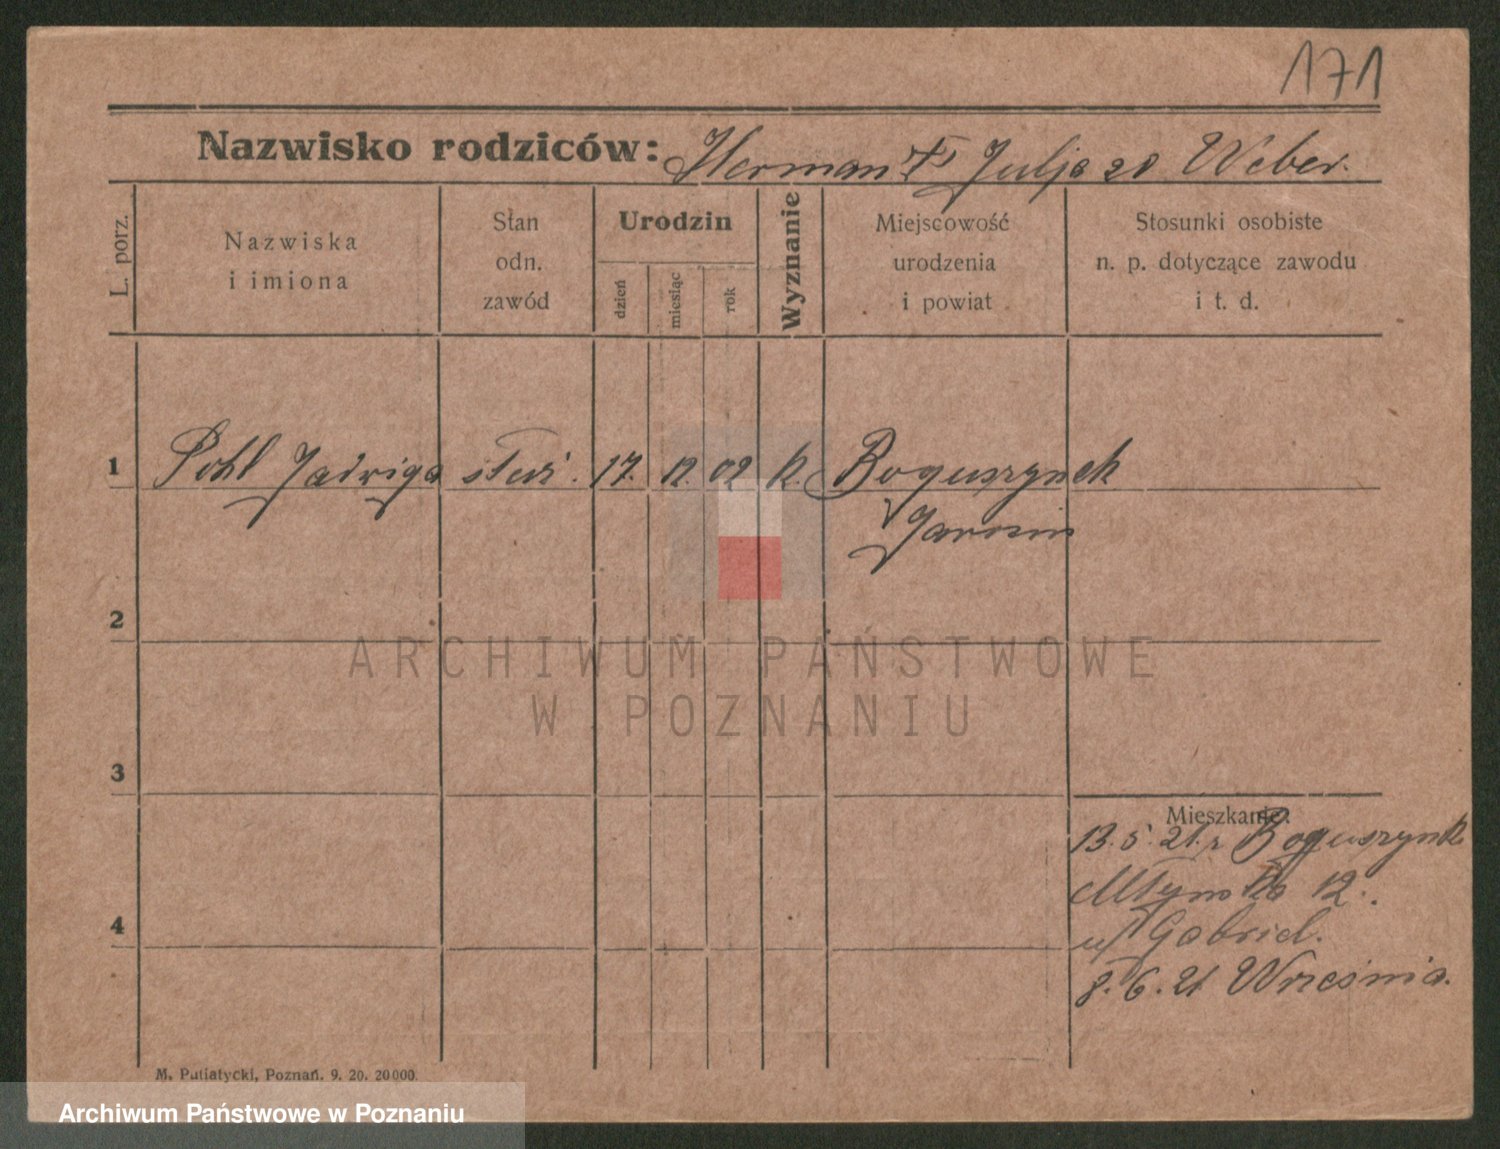 171
Nazwisko rodziców: Herman † Julja zd Weber.
L. porz.
Nazwiska
i imiona
Stan
odn.
zawód
Urodzin
dzień
miesiąc
rok
Wyznanie
Miejscowość
urodzenia
i powiat
Stosunki osobiste
n. p. dotyczące zawodu
i t. d.
1 Pohl Jadwiga służ. 17. 12. 02 k. Boguszynek
Jarocin
2
3
4
Mieszkanie:
13.5.21. z Boguszynk
Młyńska 12.
u/ Gabriel.
8.6.21 Września.
M. Putiatycki, Poznań. 9. 20. 20000.
ARCHIWUM PAŃSTWOWE
W POZNANIU
Archiwum Państwowe w Poznaniu